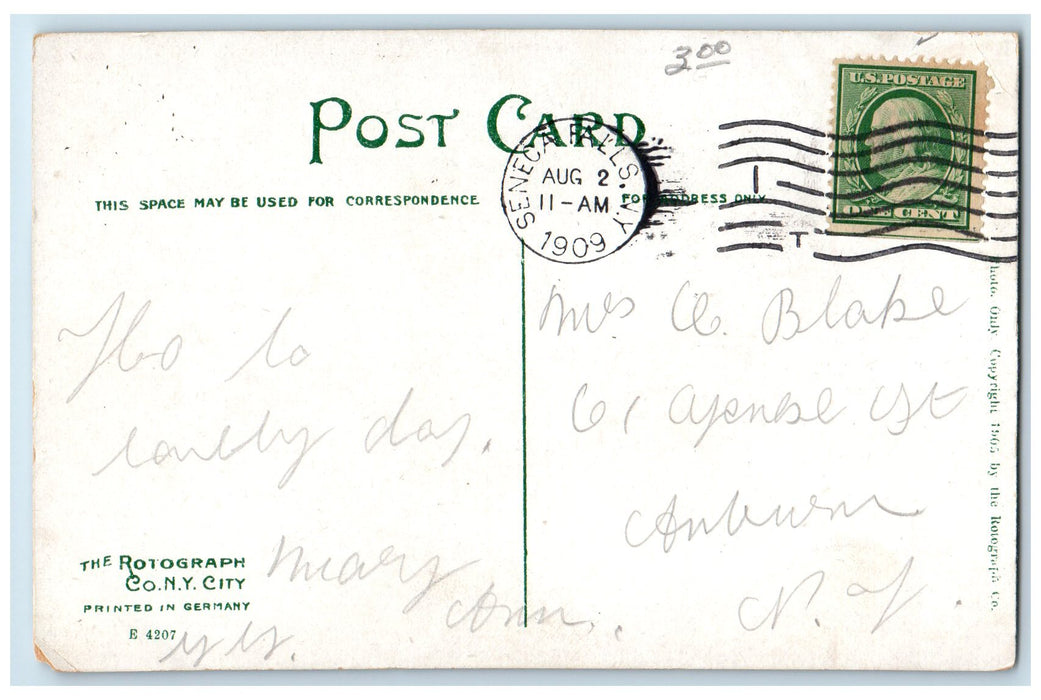 3.00
U.S. POSTAGE
ONE CENT
POST CARD
SENECA FALLS. N.Y.
AUG 2
11-AM
1909
1
T
THIS SPACE MAY BE USED FOR CORRESPONDENCE
FOR ADDRESS ONLY
lovely day.
Mary
Ann.
Mrs C. Blake
61
St
Auburn
N. Y.
THE ROTOGRAPH
CO. N.Y. CITY
PRINTED IN GERMANY
E 4207
Photo. Only Copyright 1905 by the Rotograph Co.